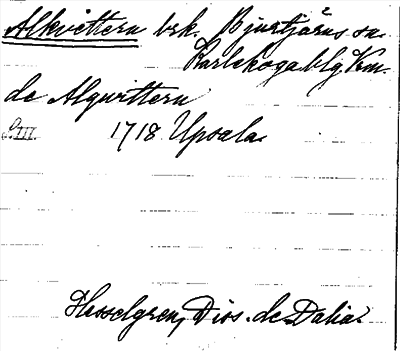 Alkvettern brk. Bjurtjärns sn.
Karlskoga blg Vrm.
de Alqvittern
1718 Upsala
Hesselgren, Diss. de Dalia.